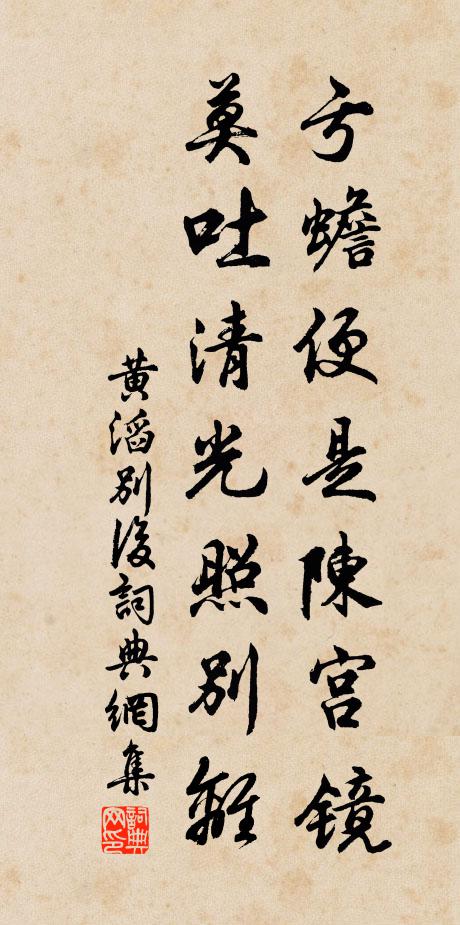 亏蟾便是陳宫鏡
莫吐清光照別離
黄滔別後詞典網集
詞典网印